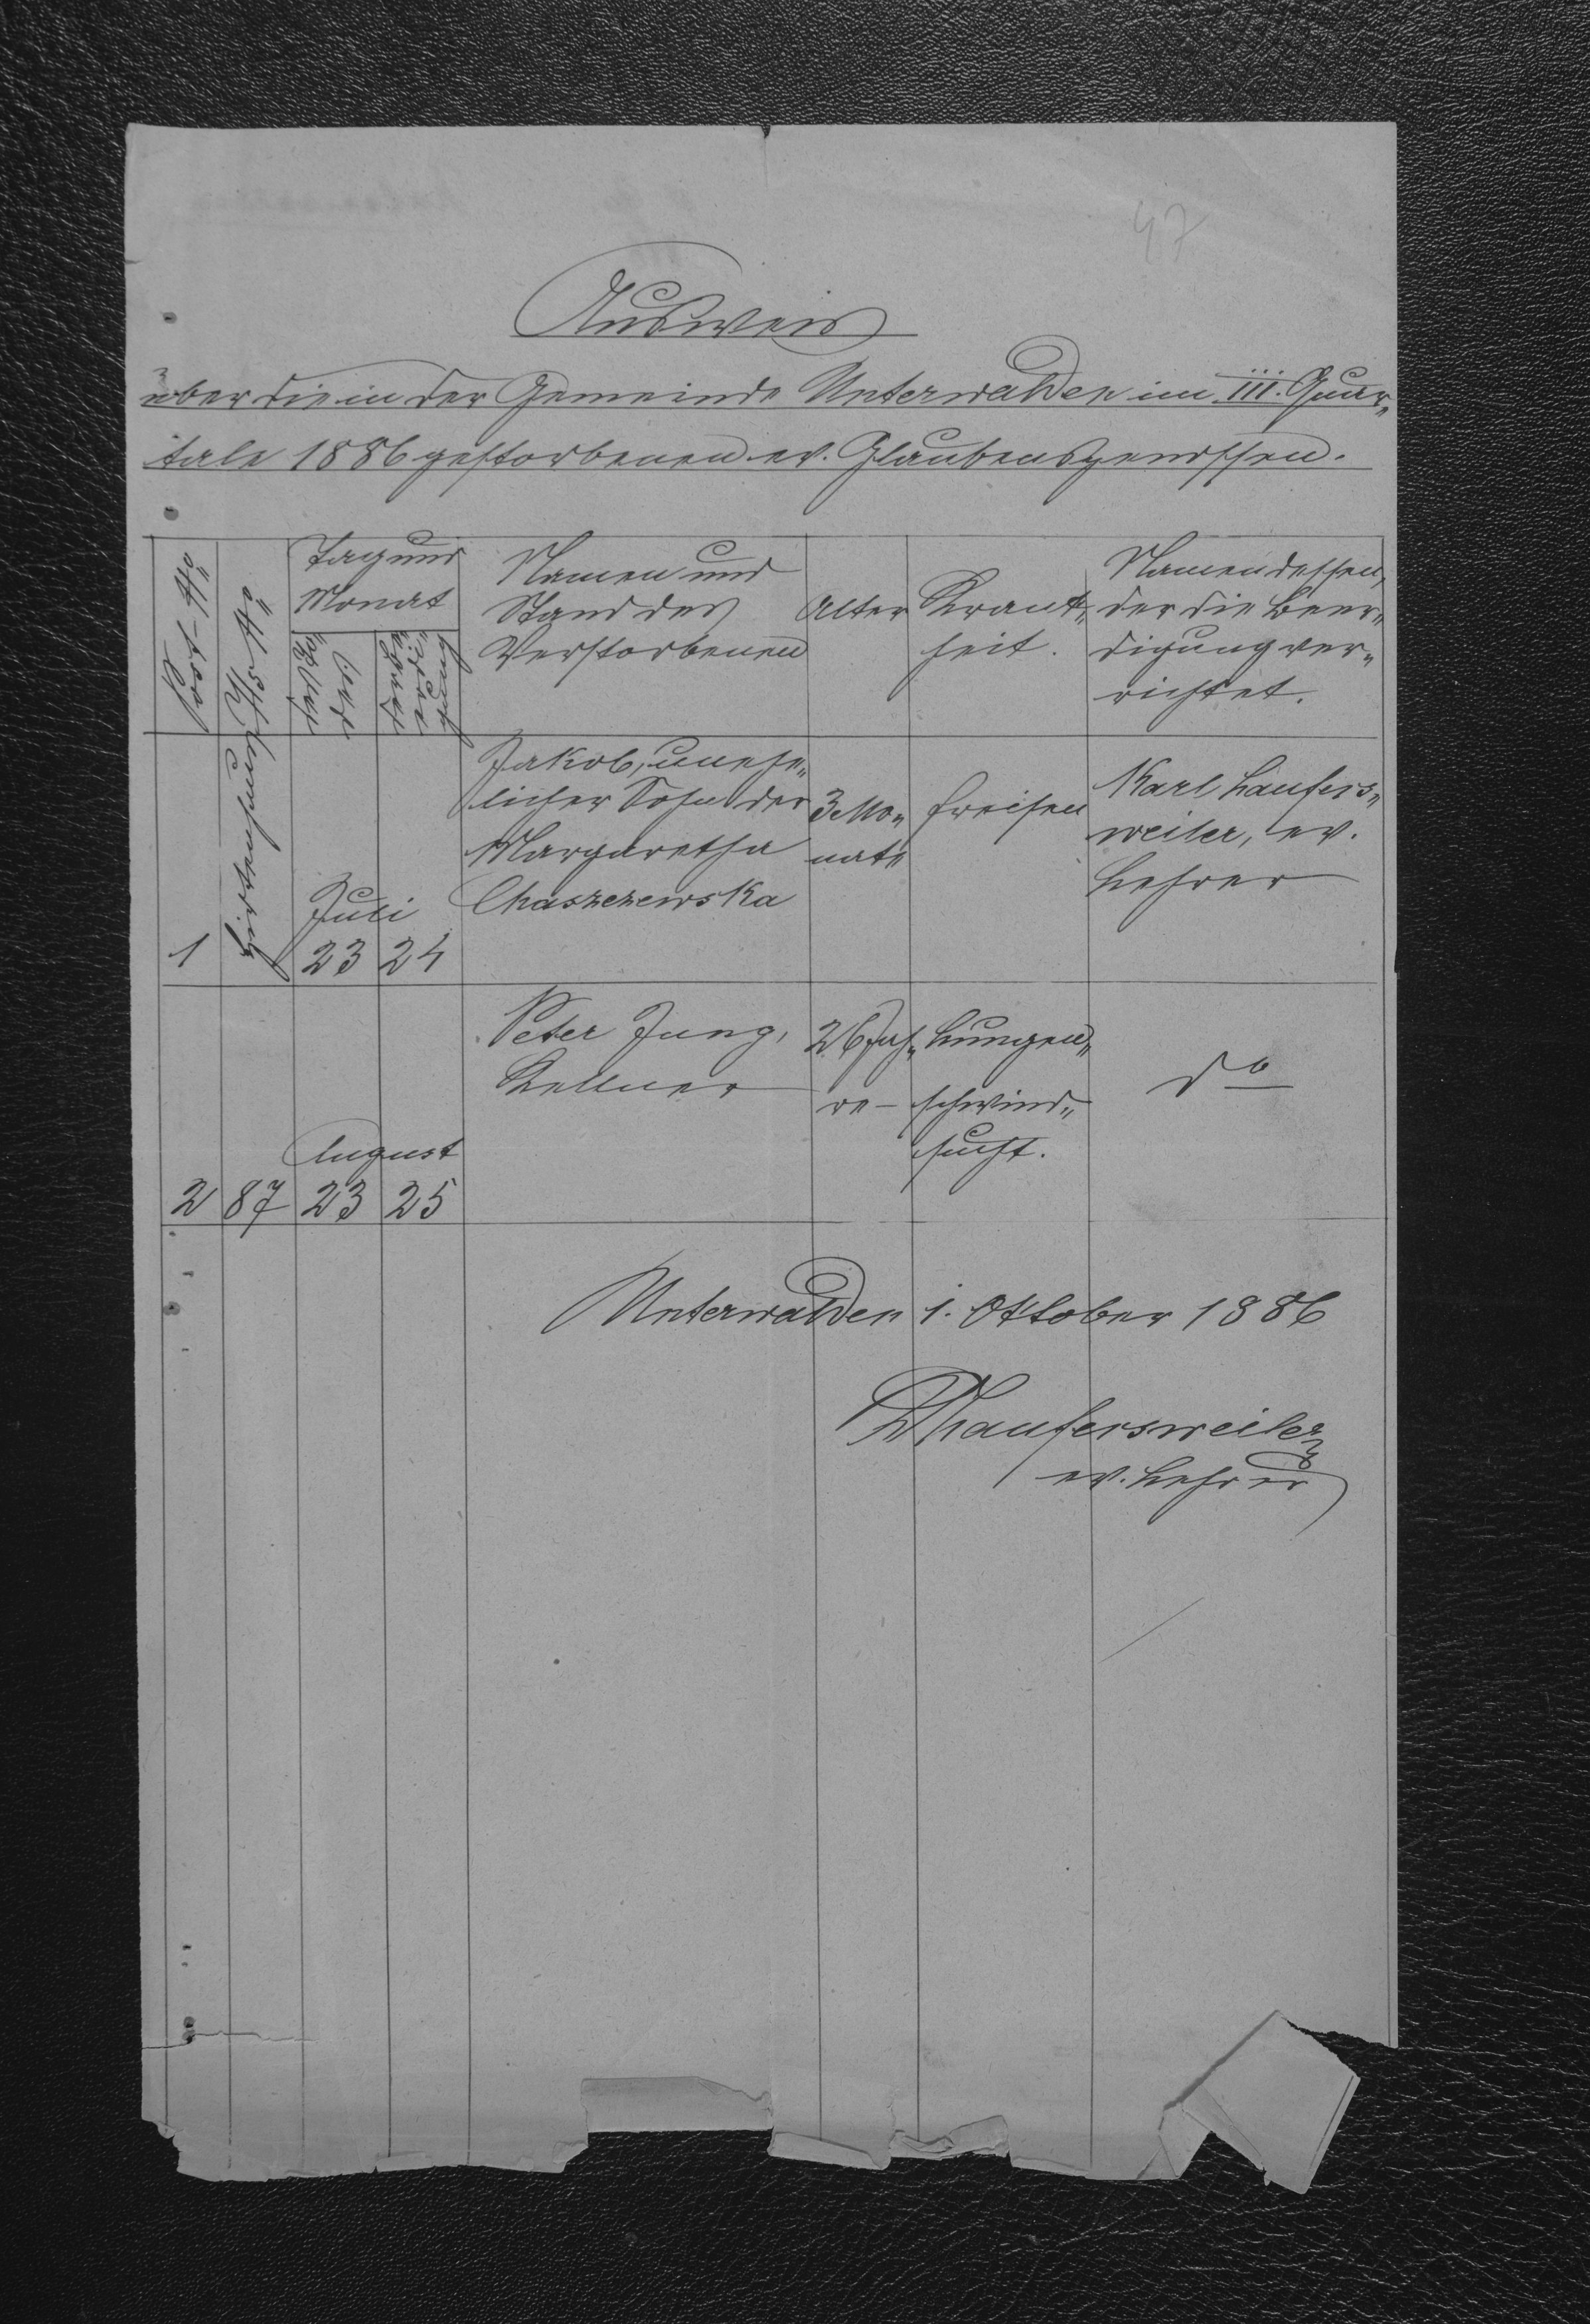 47
Ausweis
über die in der Gemeinde Unterwalden im III. Quar„
tale 1886 gestorbenen ev. Glaubensgenossen.
Post-No
Haus No
Tag und
Monat
des
Todes
der
Beerdi„
gung
Namen und
Stand des
Verstorbenen
Alter
Krank„
heit.
Namen dessen,
der die Beer„
digung ver„
richtet.
1
Juli
23 24
Jakob, unehe„
licher Sohn der
Margaretha
Chaszczewska
3 Mo„
nate
Freisen
Karl Laufers„
weiler, ev.
Lehrer
2 87
August
23 25
Peter Jung,
Kellner
26 Jah„
re -
Lungen„
schwind„
sucht.
do
Unterwalden 1. Oktober 1886
Laufersweiler
ev. Lehrer